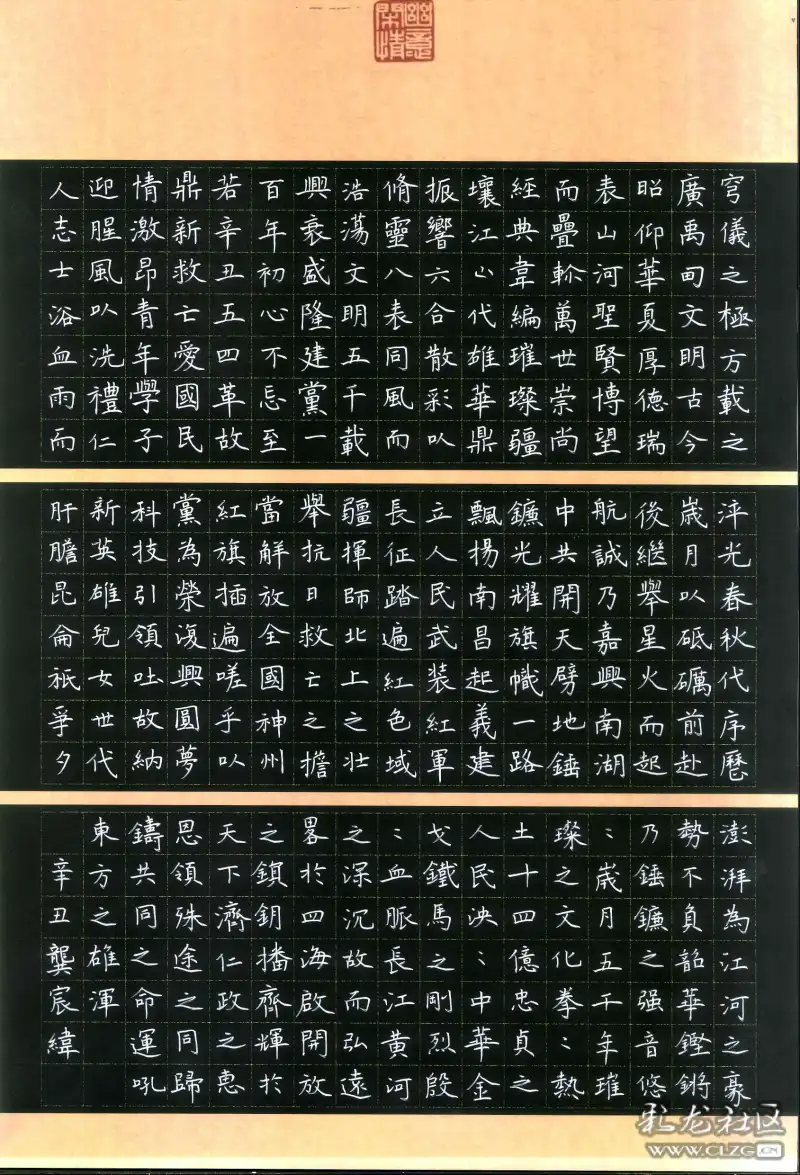 幽意閑情
穹儀之極方載之
廣禹甸文明古今
昭仰華夏厚德瑞
表山河聖賢博望
而疊軫萬世崇尚
經典韋編璀璨疆
壤江山代雄華鼎
振響六合散彩以
脩靈八表同風而
浩蕩文明五千載
興衰盛隆建黨一
百年初心不忘至
若辛丑五四革故
鼎新救亡愛國民
情激昂青年學子
迎腥風以洗禮仁
人志士浴血雨而
泙光春秋代序曆
歲月以砥礪前赴
後繼舉星火而起
航誠乃嘉興南湖
中共開天劈地錘
鐮光耀旗幟一路
飄揚南昌起義建
立人民武裝紅軍
長征踏遍紅色域
疆揮師北上之壯
舉抗日救亡之擔
當解放全國神州
紅旗插遍嗟乎以
黨為榮復興圓夢
科技引領吐故納
新英雄兒女世代
肝膽昆侖祇爭夕
澎湃為江河之豪
勢不負韶華鏗鏘
乃錘鐮之强音悠
〻歲月五千年璀
璨之文化拳〻熱
土十四億忠貞之
人民泱〻中華金
戈鐵馬之剛烈殷
〻血脈長江黃河
之深沉故而弘遠
畧於四海啟開放
之鎖鑰播齊輝於
天下濟仁政之惠
恩領殊途之同歸
鑄共同之命運吼
東方之雄渾
辛丑龔宸緯
彩龙社区
WWW.CLZG.CN